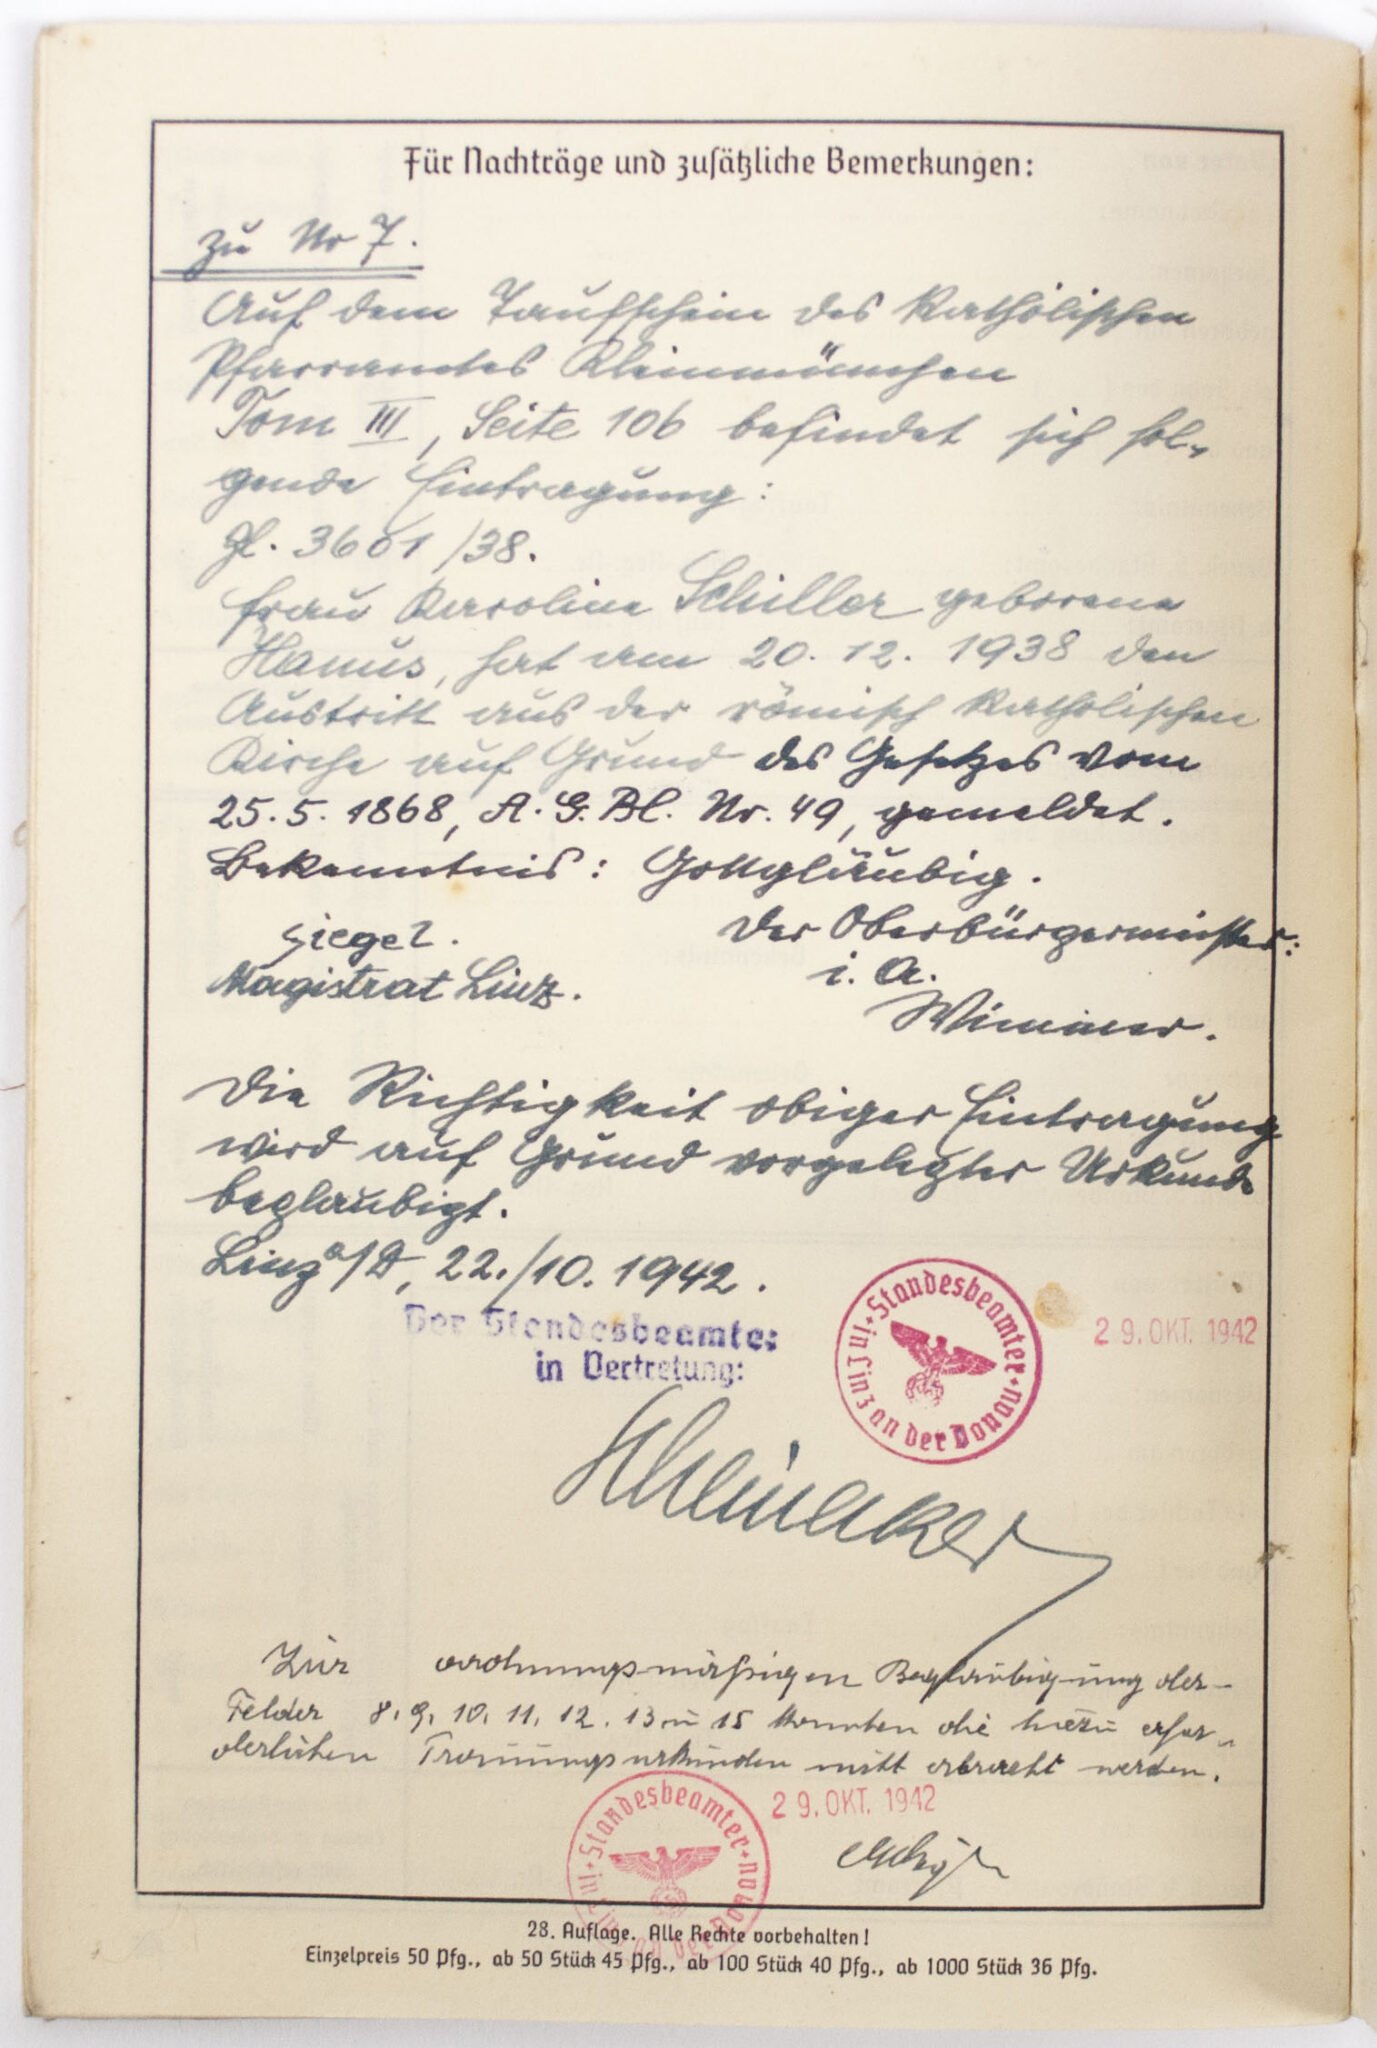 Für Nachträge und zusätzliche Bemerkungen:
zu Nr 7.
Auf dem Taufschein des Katholischen
Pfarramtes Kleinmünchen
Tom III, Seite 106 befindet sich fol-
gende Eintragung:
Zl. 3601/38.
Frau Karoline Schiller geborene
Hanus, hat am 20. 12. 1938 den
Austritt aus der römisch Katholischen
Kirche auf Grund des Gesetzes vom
25. 5. 1868, R. G. Bl. Nr. 49, gemeldet.
Bekenntnis: Gottgläubig.
Siegel.
Der Oberbürgermeister:
Magistrat Linz.
i. A.
Wimmer.
Die Richtigkeit obiger Eintragung
wird auf Grund vorgelegter Urkunde
beglaubigt.
Linz a/D, 22./10. 1942.
Der Standesbeamte:
in Vertretung:
Standesbeamter in Linz an der Donau
29. OKT. 1942
Zur ordnungsmäßigen Beglaubigung der
Felder 8, 9, 10, 11, 12, 13 u 15 konnten die hiezu erfor-
derlichen Trauungsurkunden nicht erbracht werden.
Standesbeamter in Linz an der Donau
29. OKT. 1942
28. Auflage. Alle Rechte vorbehalten!
Einzelpreis 50 Pfg., ab 50 Stück 45 Pfg., ab 100 Stück 40 Pfg., ab 1000 Stück 36 Pfg.